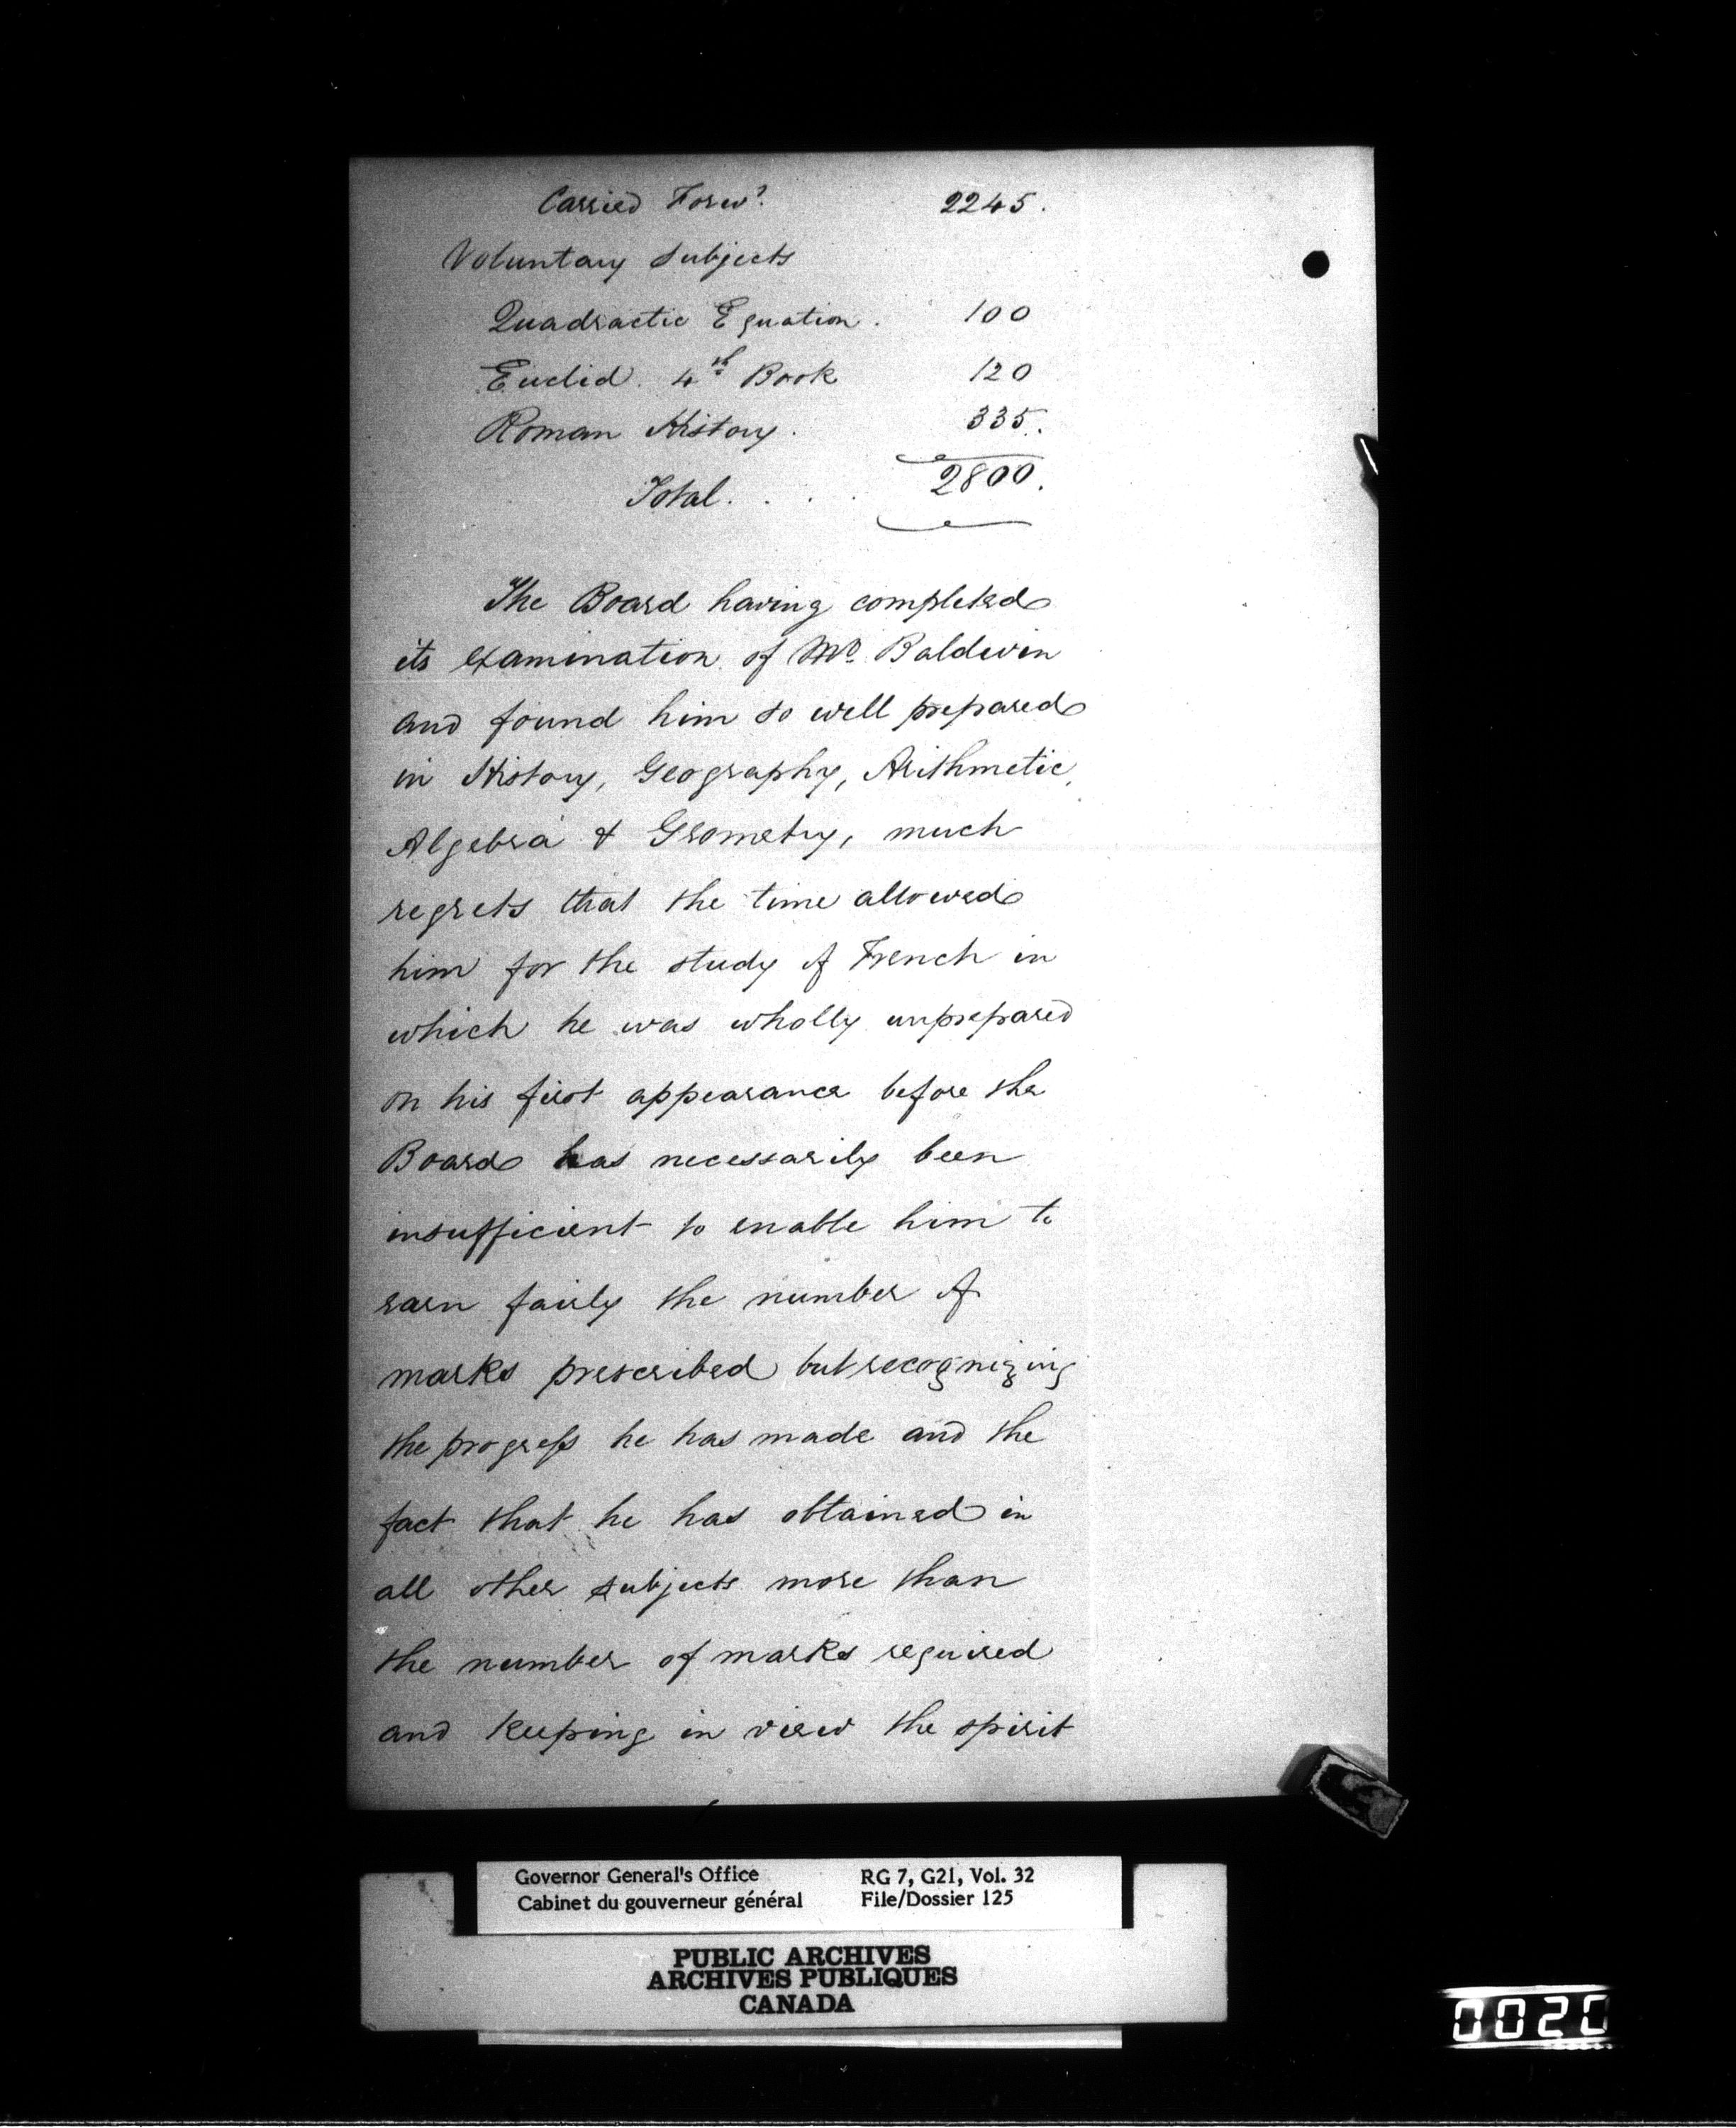 Carried Forwd. 2245.
Voluntary Subjects
Quadractic Equation. 100
Euclid. 4th Book 120
Roman History. 335.
Total. . . . 2800.
The Board having completed
its examination of Mr. Baldwin
and found him so well prepared
in History, Geography, Arithmetic,
Algebra & Geometry, much
regrets that the time allowed
him for the study of French in
which he was wholly unprepared
on his first appearance before the
Board has necessarily been
insufficient to enable him to
earn fairly the number of
marks prescribed but recognizing
the progress he has made and the
fact that he has obtained in
all other subjects more than
the number of marks required
and keeping in view the spirit
Governor General's Office RG 7, G21, Vol. 32
Cabinet du gouverneur général File/Dossier 125
PUBLIC ARCHIVES
ARCHIVES PUBLIQUES
CANADA
0020